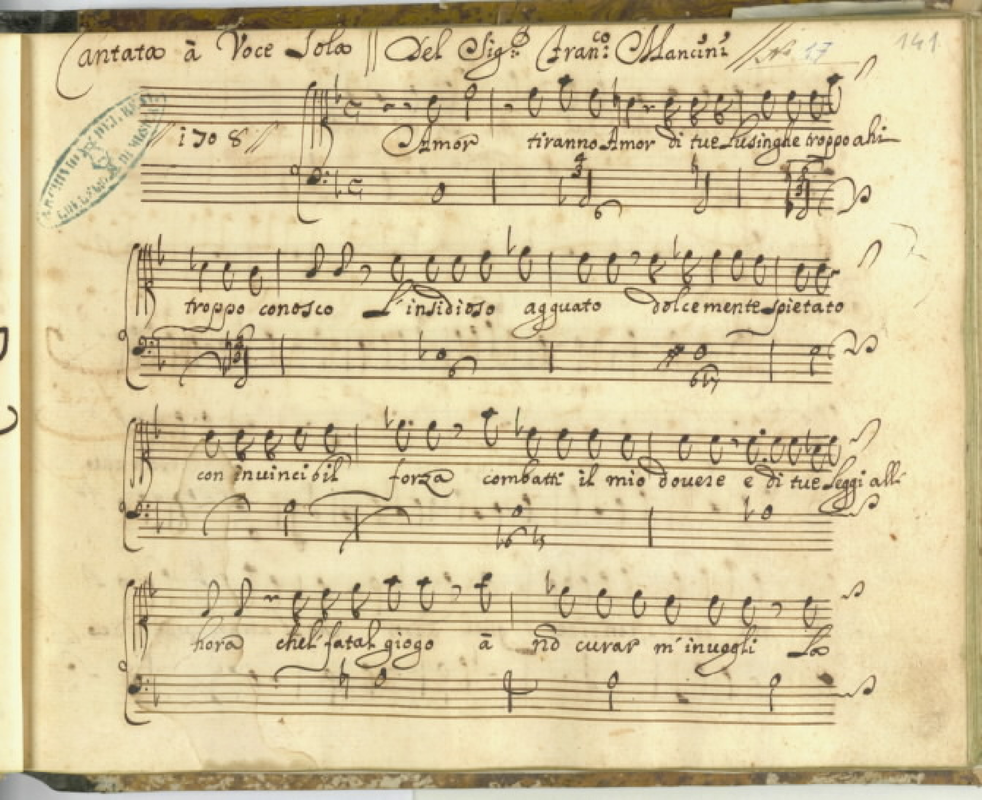 Cantata à Voce Sola || Del Sig.re Fran.co Mancini // No. 17 141
ARCHIVIO DEL REAL
DI MUSICA
1708 //
Amor tiranno Amor di tue lusinghe troppo ahi
troppo conosco L'insidioso agguato dolcemente spietato
con invincibil forza combatti il mio dovere e di tue leggi all'
hora chel' fatal giogo à nō curar m'invogli La